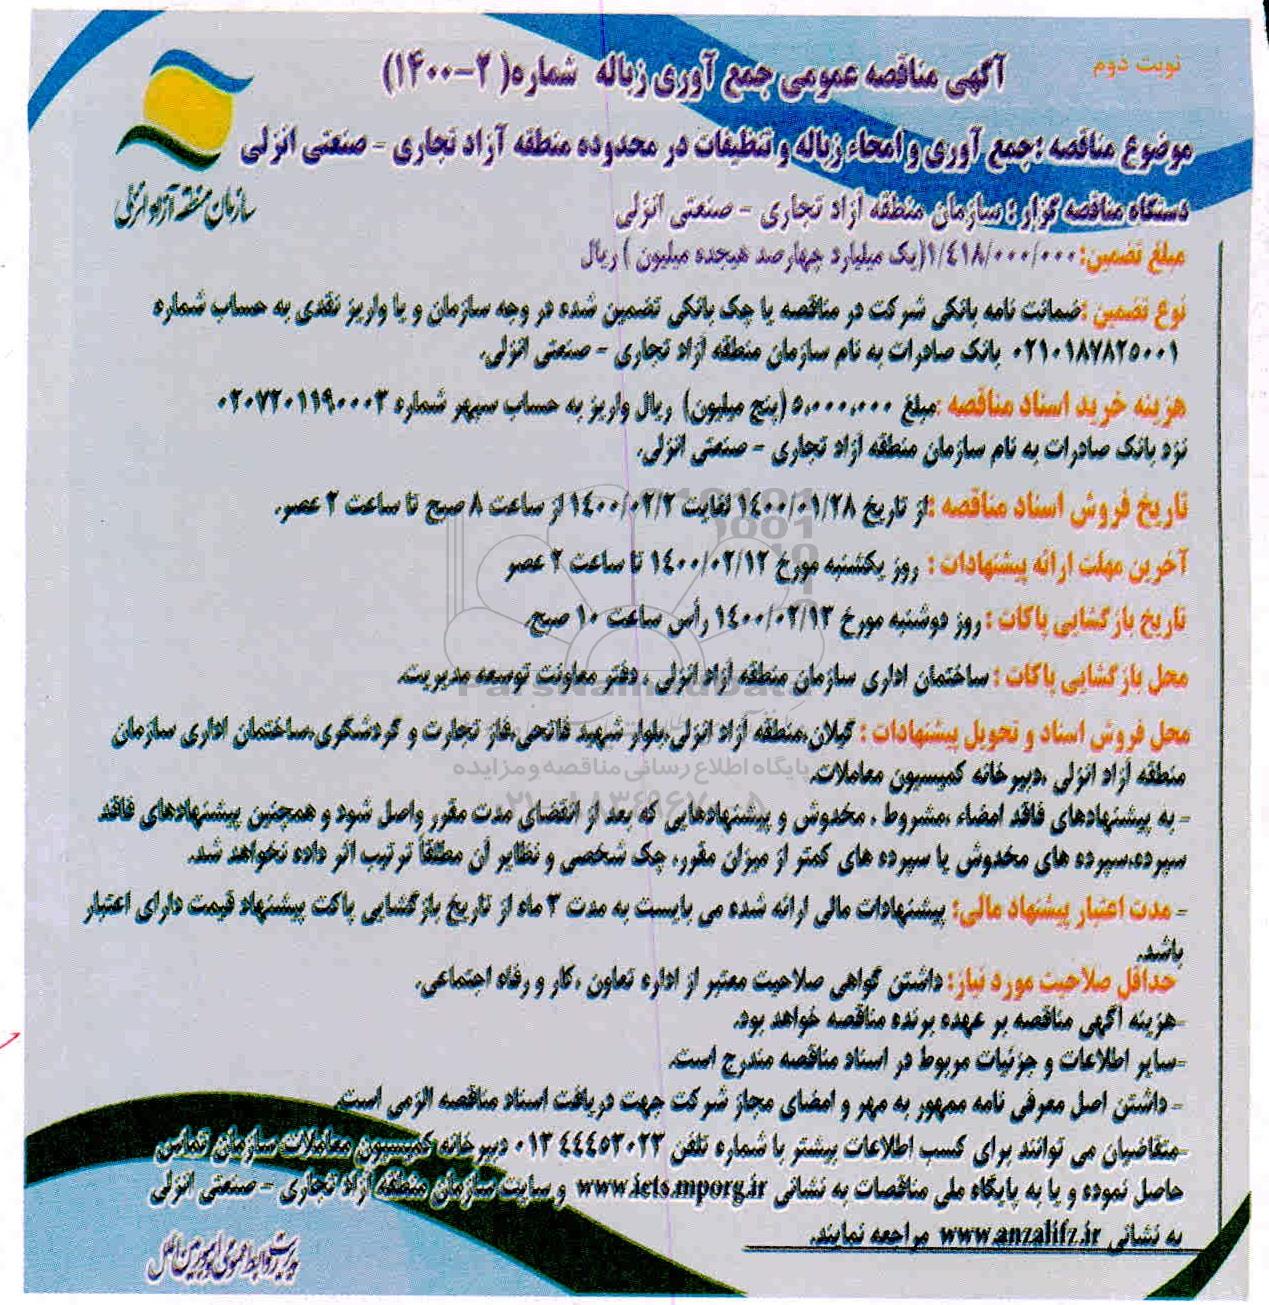 نوبت دوم
آگهی مناقصه عمومی جمع آوری زباله شماره( ۲-۱۴۰۰)
موضوع مناقصه :جمع آوری و امحاء زباله و تنظیفات در محدوده منطقه آزاد تجاری - صنعتی انزلی
سازمان منطقه آزاد انزلی
دستگاه مناقصه گزار : سازمان منطقه آزاد تجاری - صنعتی انزلی
مبلغ تضمین: ۱/۴۱۸/۰۰۰/۰۰۰(یک میلیارد چهارصد هیجده میلیون ) ریال
نوع تضمین :ضمانت نامه بانکی شرکت در مناقصه یا چک بانکی تضمین شده در وجه سازمان و یا واریز نقدی به حساب شماره
۰۲۱۰۱۸۷۸۲۵۰۰۱ بانک صادرات به نام سازمان منطقه آزاد تجاری - صنعتی انزلی.
هزینه خرید اسناد مناقصه :مبلغ ۵،۰۰۰،۰۰۰ (پنج میلیون) ریال واریز به حساب سپهر شماره ۰۲۰۷۲۰۱۱۹۰۰۰۳
نزد بانک صادرات به نام سازمان منطقه آزاد تجاری - صنعتی انزلی.
تاریخ فروش اسناد مناقصه :از تاریخ ۱۴۰۰/۰۱/۲۸ لغایت ۱۴۰۰/۰۲/۲ از ساعت ۸ صبح تا ساعت ۲ عصر.
آخرین مهلت ارائه پیشنهادات : روز یکشنبه مورخ ۱۴۰۰/۰۲/۱۲ تا ساعت ۲ عصر
تاریخ بازگشایی پاکات : روز دوشنبه مورخ ۱۴۰۰/۰۲/۱۳ رأس ساعت ۱۰ صبح.
محل بازگشایی پاکات : ساختمان اداری سازمان منطقه آزاد انزلی ، دفتر معاونت توسعه مدیریت.
محل فروش اسناد و تحویل پیشنهادات : گیلان،منطقه آزاد انزلی،بلوار شهید فاتحی،فاز تجارت و گردشگری،ساختمان اداری سازمان
منطقه آزاد انزلی ،دبیرخانه کمیسیون معاملات.
پایگاه اطلاع رسانی مناقصه و مزایده
- به پیشنهادهای فاقد امضاء ،مشروط ، مخدوش و پیشنهادهایی که بعد از انقضای مدت مقرر واصل شود و همچنین پیشنهادهای فاقد
سپرده،سپرده های مخدوش یا سپرده های کمتر از میزان مقرر، چک شخصی و نظایر آن مطلقاً ترتیب اثر داده نخواهد شد.
- مدت اعتبار پیشنهاد مالی: پیشنهادات مالی ارائه شده می بایست به مدت ۳ ماه از تاریخ بازگشایی پاکت پیشنهاد قیمت دارای اعتبار
باشد.
حداقل صلاحیت مورد نیاز: داشتن گواهی صلاحیت معتبر از اداره تعاون ،کار و رفاه اجتماعی.
-هزینه آگهی مناقصه بر عهده برنده مناقصه خواهد بود.
-سایر اطلاعات و جزئیات مربوط در اسناد مناقصه مندرج است.
- داشتن اصل معرفی نامه ممهور به مهر و امضای مجاز شرکت جهت دریافت اسناد مناقصه الزمی است.
-متقاضیان می توانند برای کسب اطلاعات بیشتر با شماره تلفن ۰۱۳۴۴۴۵۳۰۲۳ دبیرخانه کمیسیون معاملات سازمان تماس
حاصل نموده و یا به پایگاه ملی مناقصات به نشانی www.iets.mporg.ir و سایت سازمان منطقه آزاد تجاری - صنعتی انزلی
به نشانی www.anzalifz.ir مراجعه نمایند.